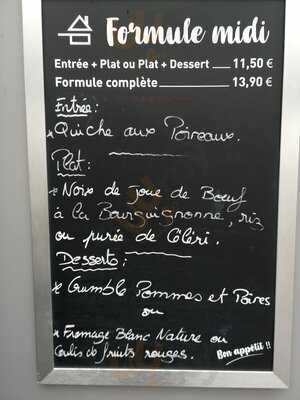 Formule midi
Entrée + Plat ou Plat + Dessert 11,50 €
Formule complète 13,90 €
Entrée:
* Quiche aux Poireaux.
Plat:
* Noix de joue de Boeuf
à la Bourguignonne, riz
ou purée de Céléri.
Desserts:
* Crumble Pommes et Poires
ou
* Fromage Blanc Nature ou
Coulis de fruits rouges.
Bon appétit !!